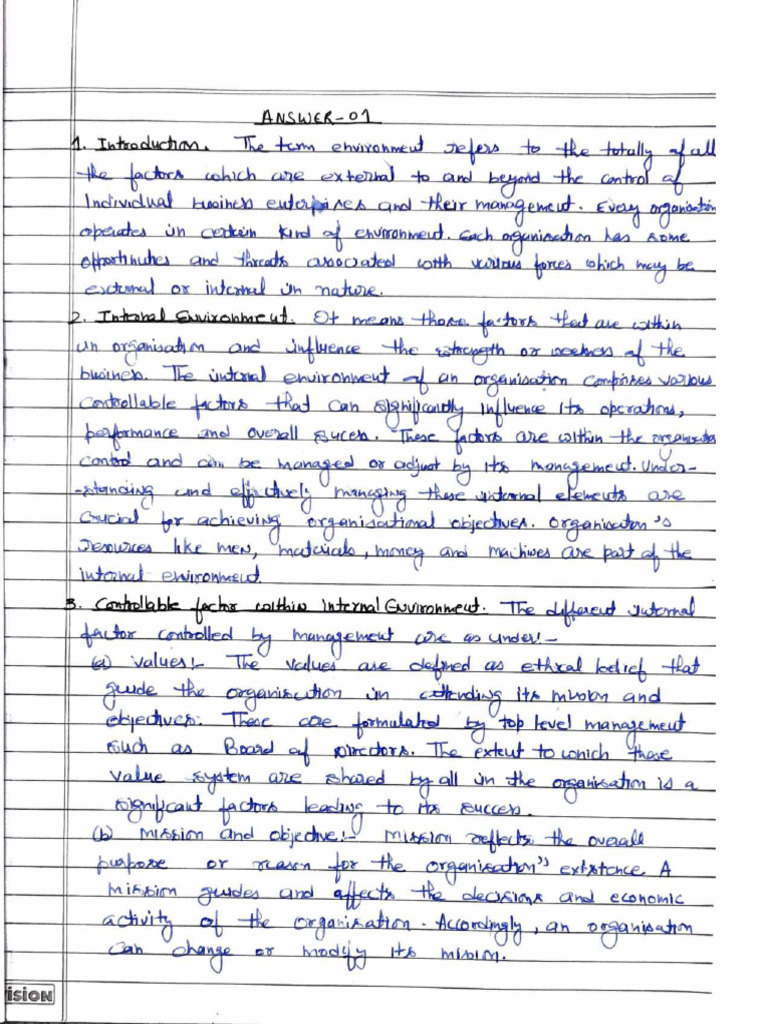 ANSWER-01
1. Introduction. The term environment refers to the totally of all
the factors which are external to and beyond the control of
Individual business enterprises and their management. Every organisation
operates in certain kind of environment. Each organisation has some
opportinutes and threats associated with various forces which may be
external or internal in nature.
2. Internal Environment. It means those factors that are within
un organisation and influence the strength or weekness of the
business. The internal environment of an organisation comprises various
controllable factors that can significantly influence its operations,
performance and overall sucess. These factors are within the organisation
control and can be managed or adjust by its management. Under-
-standing and effectively managing these internal elements are
crucial for achieving organisational objectives. Organisation's
resources like men, materials, money and machines are part of the
internal environment
3. Controllable factor within Internal Environment. The different internal
factor controlled by management are as under:-
(a) values:- The values are defined as ethical belief that
guide the organisation in attending its mission and
objectives. These are formulated by top level management
such as Board of Directors. The extent to which these
value system are shared by all in the organisation is a
significant factors leading to its success.
(b) Mission and objective:- Mission reflects the overall
purpose or reason for the organisation's existence. A
mission guides and affects the decisions and economic
activity of the organisation. Accordingly, an organisation
can change or modify its mission.
ISION